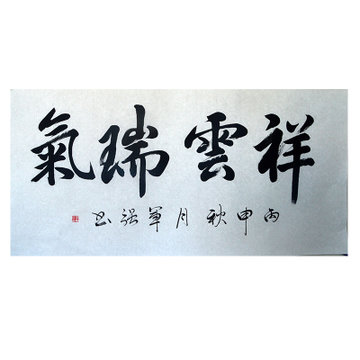 祥雲瑞氣
丙申秋月军强书